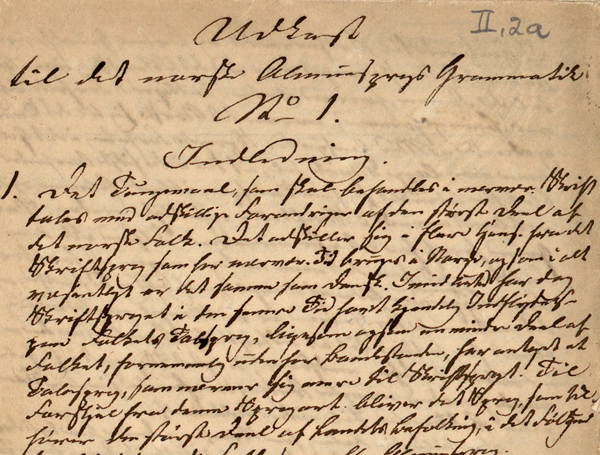 II, 2a
Udkast
til det norske Almuesprogs Grammatik
No 1.
Indledning.
1. Det Tungemaal, som skal behandles i nærværende Skrift
tales med adskillige Forandringer af den største Deel af
det norske Folk. Det adskiller sig i flere Hens. fra det
Skriftsprog som her nærv. Tid bruges i Norge, og som i alt
væsentligt er det samme som Dansk. Imidlertid har dog
Skriftsproget i den senere Tid havt kjendelig Indflydelse
paa Folkets Talesprog, ligesom ogsaa en mindre Deel af
Folket, fornemmelig indenfor Handelsstanden, har antaget et
Talesprog, som nærmer sig mere til Skriftsproget. Til
Forskjel fra denne Sprogart bliver det Sprog, som til-
hører den største Deel af Landets Befolkning, i det Følgende